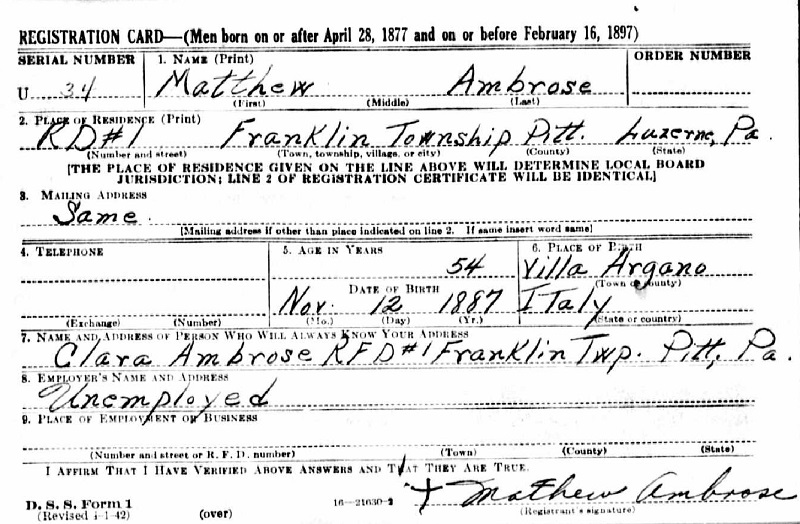 REGISTRATION CARD—(Men born on or after April 28, 1877 and on or before February 16, 1897)
SERIAL NUMBER 1. NAME (Print) ORDER NUMBER
U 34 Matthew Ambrose
(First) (Middle) (Last)
2. PLACE OF RESIDENCE (Print)
RD#1 Franklin Township Pitt. Luzerne, Pa.
(Number and street) (Town, township, village, or city) (County) (State)
[THE PLACE OF RESIDENCE GIVEN ON THE LINE ABOVE WILL DETERMINE LOCAL BOARD
JURISDICTION; LINE 2 OF REGISTRATION CERTIFICATE WILL BE IDENTICAL]
3. MAILING ADDRESS
Same
[Mailing address if other than place indicated on line 2. If same insert word same]
4. TELEPHONE 5. AGE IN YEARS 6. PLACE OF BIRTH
54 Villa Argano
(Town or county)
DATE OF BIRTH
Nov. 12 1887 Italy
(Exchange) (Number) (Mo.) (Day) (Yr.) (State or country)
7. NAME AND ADDRESS OF PERSON WHO WILL ALWAYS KNOW YOUR ADDRESS
Clara Ambrose RFD#1 Franklin Twp. Pitt, Pa.
8. EMPLOYER'S NAME AND ADDRESS
Unemployed
9. PLACE OF EMPLOYMENT OR BUSINESS
(Number and street or R. F. D. number) (Town) (County) (State)
I AFFIRM THAT I HAVE VERIFIED ABOVE ANSWERS AND THAT THEY ARE TRUE.
D. S. S. Form 1 16—21630-2 Mathew Ambrose
(Revised 4-1-42) (over) (Registrant's signature)